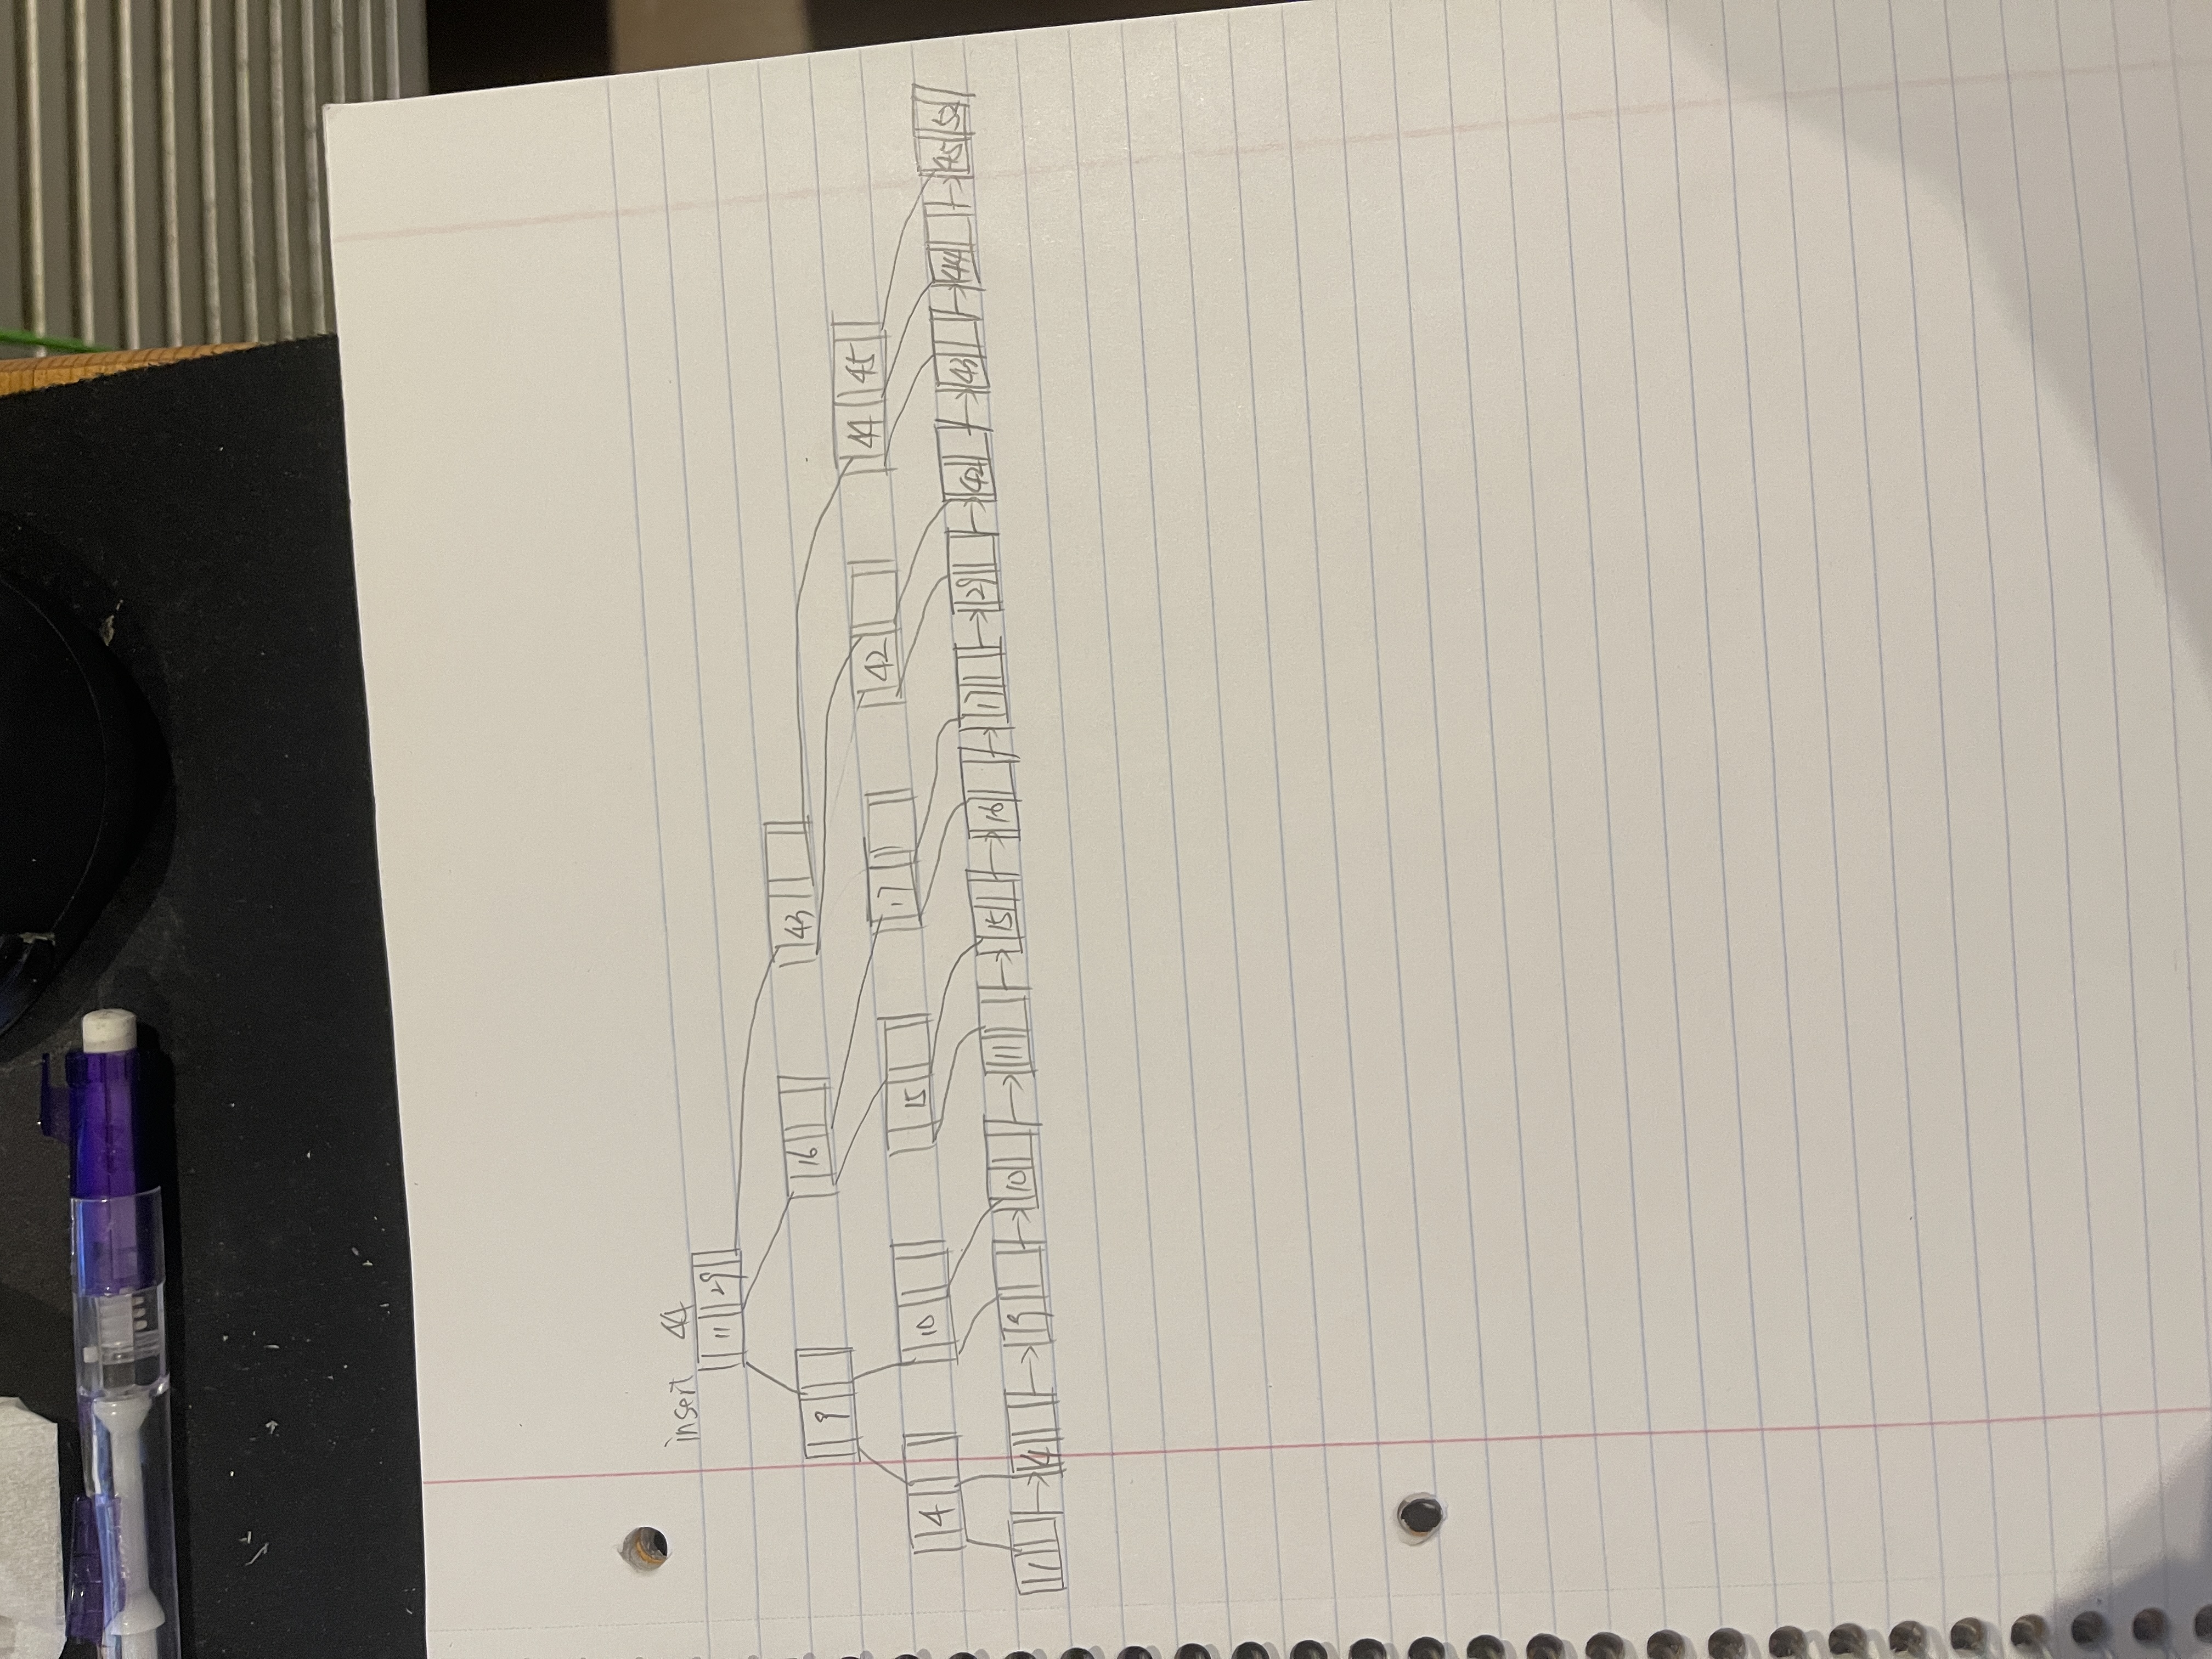 insert 44
11 29
9 16 43
4 10 15 17 42 44 45
1 4 9 10 11 15 16 17 29 42 43 44 45 52